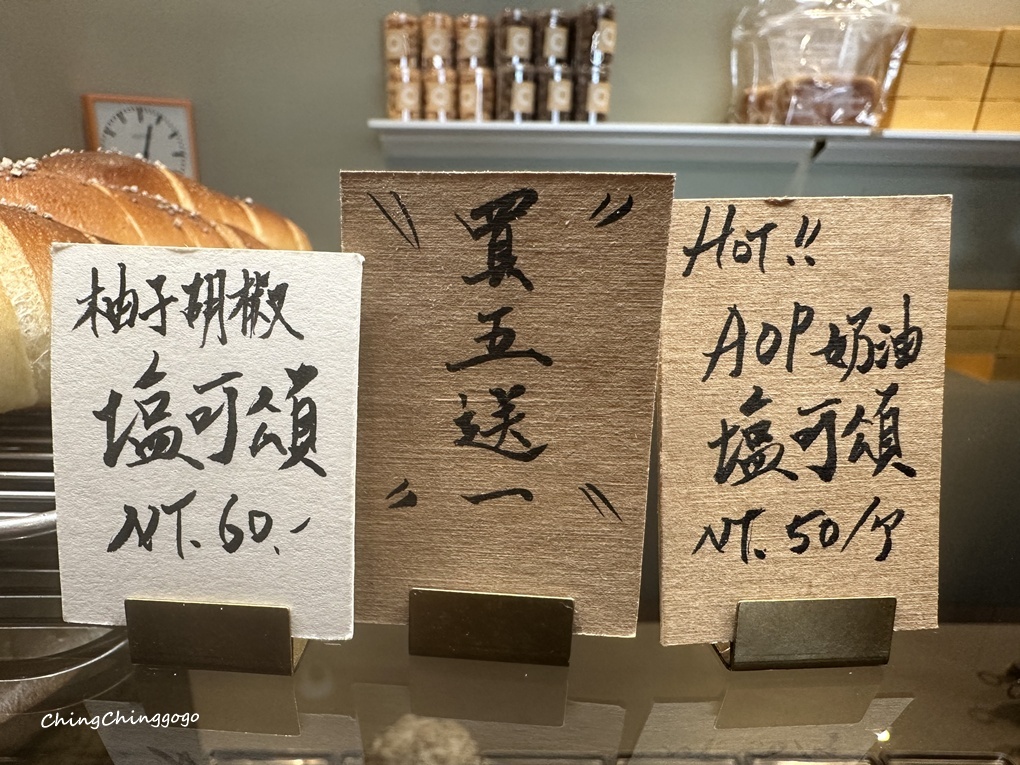 柚子胡椒
塩可頌
NT. 60.-
買
五
送
一
HOT!!
AOP 奶油
塩可頌
NT. 50/个
ChingChinggogo